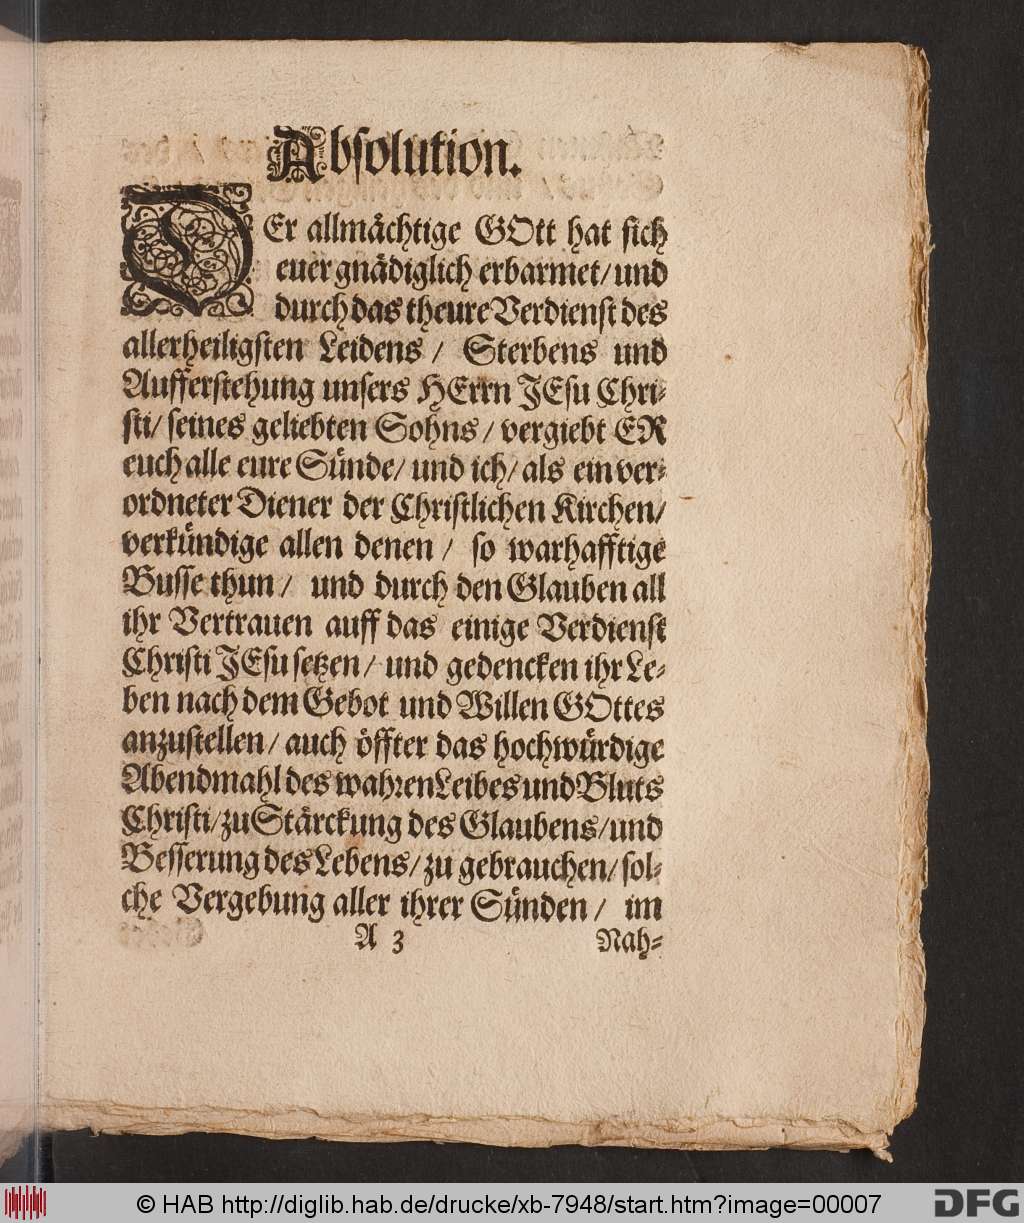 Absolution.
DEr allmächtige GOtt hat sich
euer gnädiglich erbarmet/ und
durch das theure Verdienst des
allerheiligsten Leidens / Sterbens und
Aufferstehung unsers HErrn JEsu Chri-
sti/ seines geliebten Sohns / vergiebt ER
euch alle eure Sünde/ und ich/ als ein ver-
ordneter Diener der Christlichen Kirchen/
verkündige allen denen / so warhafftige
Busse thun / und durch den Glauben all
ihr Vertrauen auff das einige Verdienst
Christi JEsu setzen / und gedencken ihr Le-
ben nach dem Gebot und Willen GOttes
anzustellen / auch öffter das hochwürdige
Abendmahl des wahren Leibes und Bluts
Christi / zu Stärckung des Glaubens / und
Besserung des Lebens / zu gebrauchen / sol-
che Vergebung aller ihrer Sünden / im
A 3 Nah-
© HAB http://diglib.hab.de/drucke/xb-7948/start.htm?image=00007
DFG